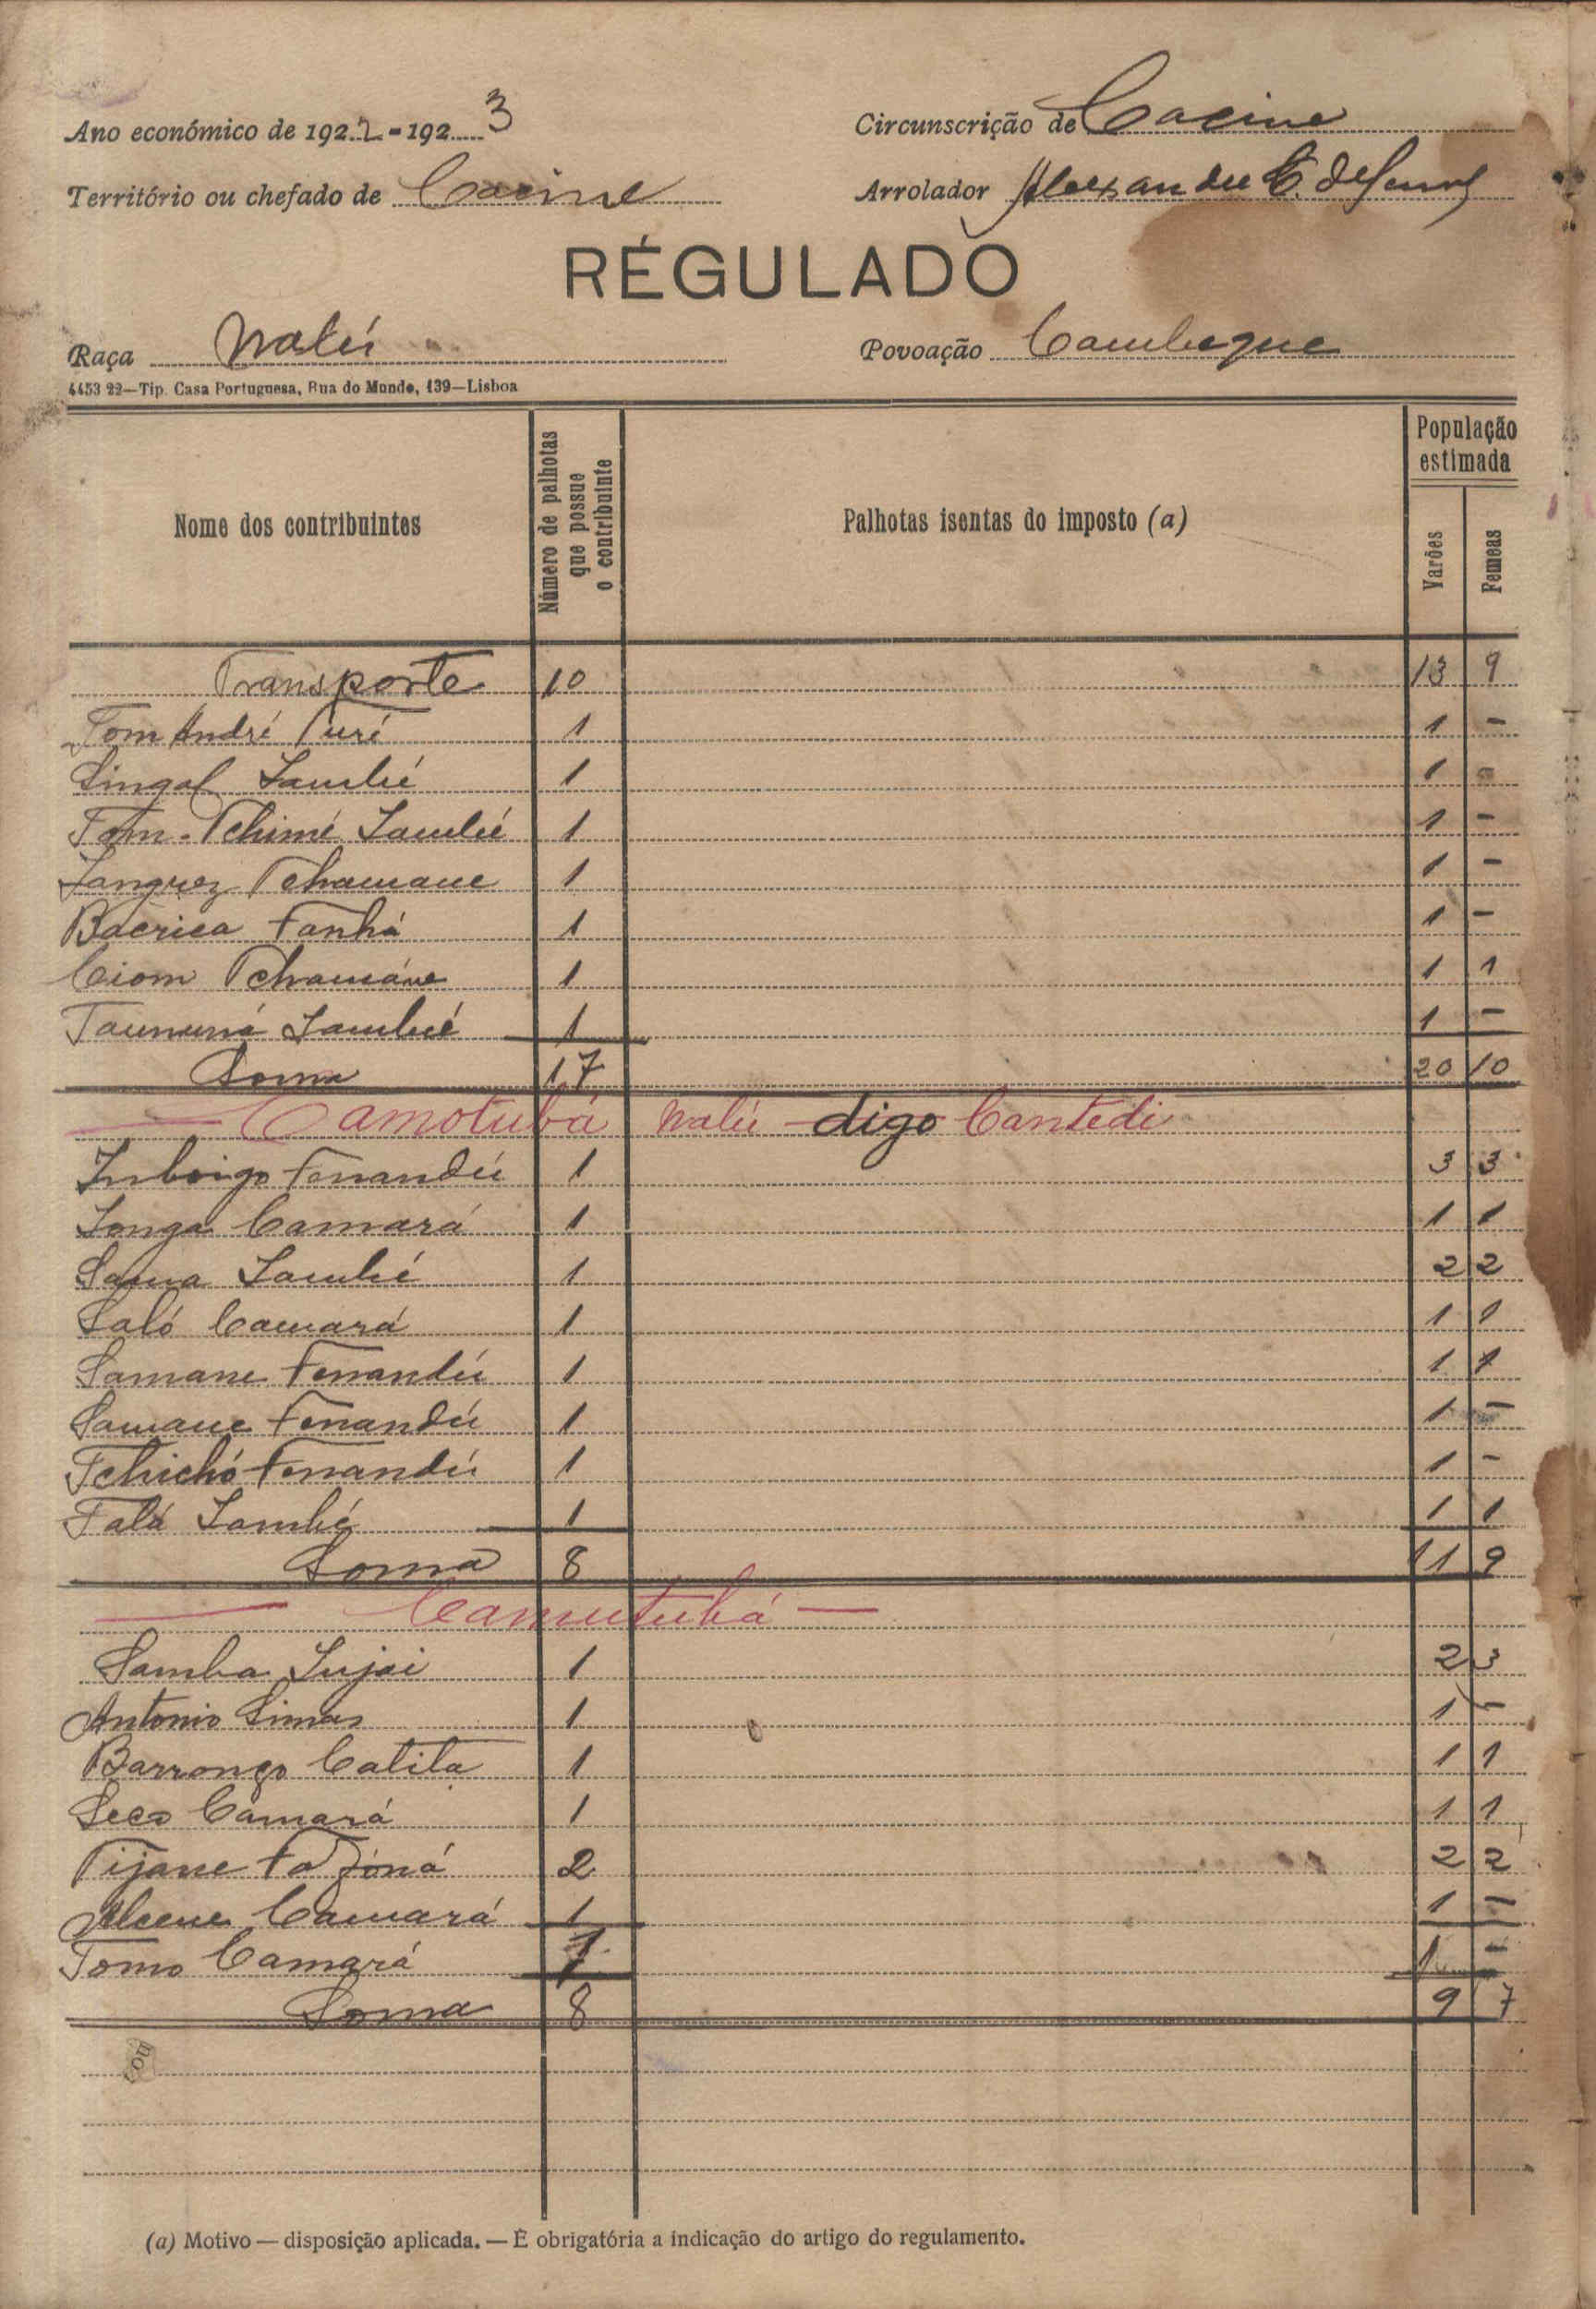 Ano económico de 1922-1923
Circunscrição de Cacine
Território ou chefado de Cacine
Arrolador Alexandre
RÉGULADO
Raça Nalú
Povoação Cambeque
4453 22—Tip. Casa Portuguesa, Rua do Mundo, 139—Lisboa
Nome dos contribuintes
Número de palhotas que possue o contribuinte
Palhotas isentas do imposto (a)
População estimada
Varões
Femeas
Transporte 10 13 9
Tom André Turé 1 1 -
Singal 1 1 -
Tom-Tchimé 1 1 -
Tchamane 1 1 -
Bacrica Fanhá 1 1 -
Ciom Tchamáne 1 1 1
1 1 -
Soma 17 20 10
— Camotubá Nalú — digo Cantedi
Fernandú 1 3 3
Songa Camará 1 1 1
Sama 1 2 2
Saló Camará 1 1 1
Samane Fernandú 1 1 1
Samane Fernandú 1 1 -
Tchichó Fernandú 1 1 -
Falá 1 1 1
Soma 8 11 9
— Camutubá —
Samba 1 2 3
Antonio Simas 1 1 -
Barronço Catita 1 1 1
Seco Camará 1 1 1
Tijane 2 2 2
Camará 1 1 -
Tomo Camará 1 1 -
Soma 8 9 7
(a) Motivo — disposição aplicada. — É obrigatória a indicação do artigo do regulamento.